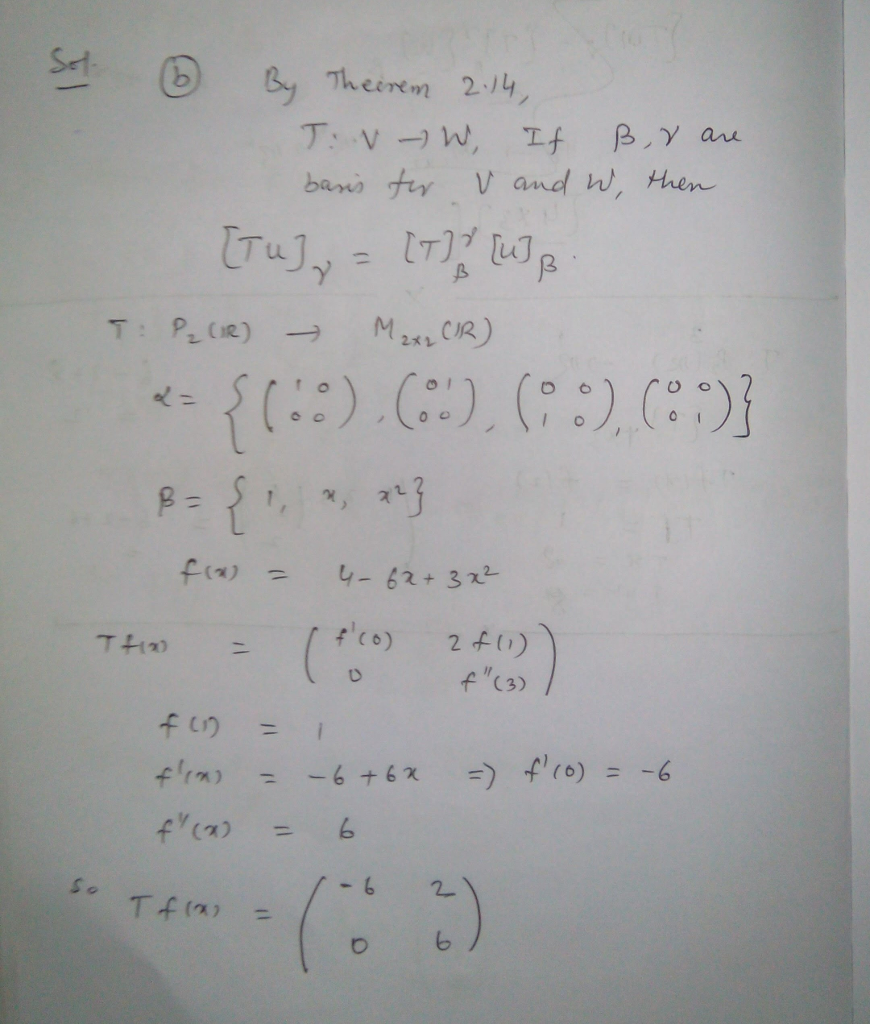 Sol. (b) By Theorem 2.14,
T: V → W, If β, γ are
basis for V and W, then
[Tu]γ = [T]βγ [u]β.
T : P2(IR) → M2x2(IR)
α = { (1 0 0 0), (0 1 0 0), (0 0 1 0), (0 0 0 1) }
β = { 1, x, x²}
f(x) = 4 - 6x + 3x²
T f(x) = ( f'(0) 2 f(1)
0 f"(3) )
f(1) = 1
f'(x) = -6 + 6x => f'(0) = -6
f"(x) = 6
So T f(x) = ( -6 2
0 6 )